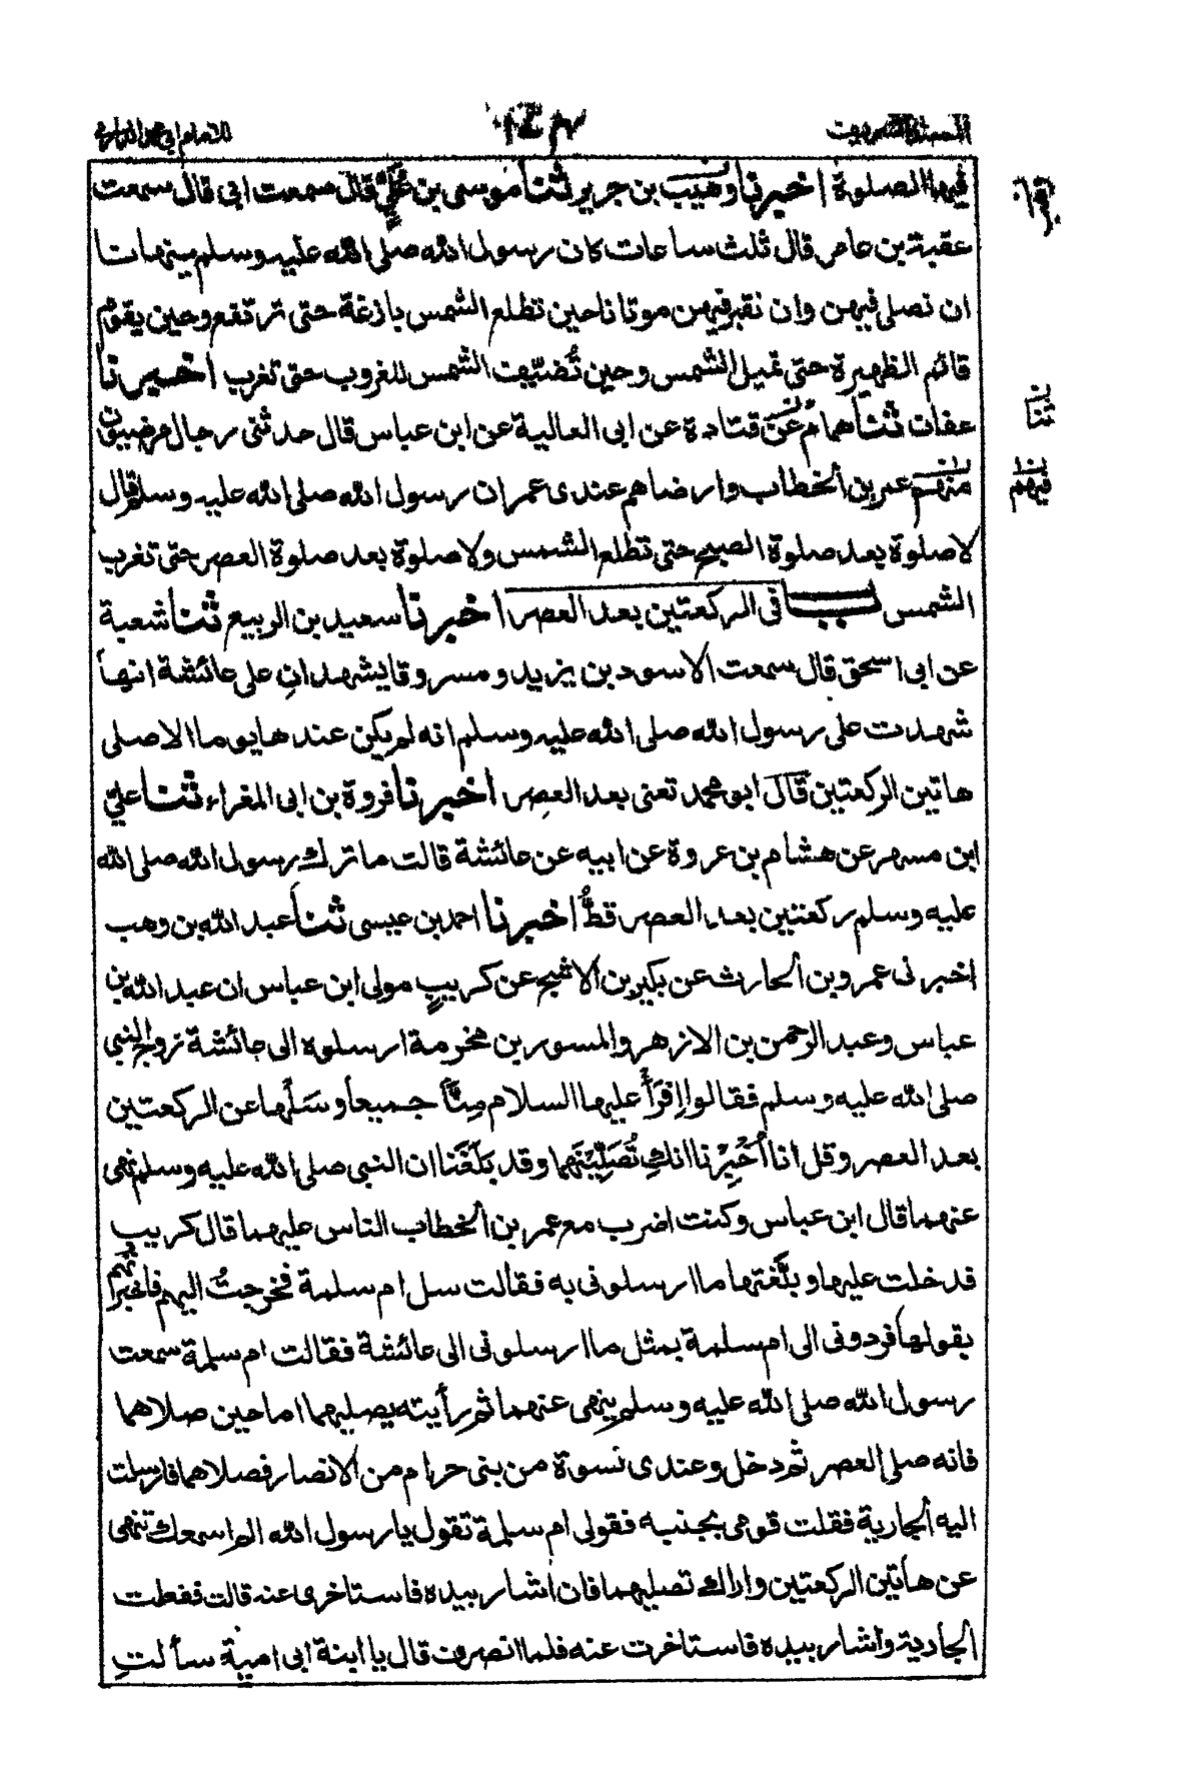 فيها الصلوة اخبرنا وهيب بن جرير ثنا موسى بن عُلَيٍّ قال سمعت ابى قال سمعت
عقبة بن عامر قال ثلث ساعات كان رسول الله صلى الله عليه وسلم ينهانا
ان نصلى فيهن وان نقبر فيهن موتانا حين تطلع الشمس بازغة حتى ترتفع وحين يقوم
قائم الظهيرة حتى تميل الشمس وحين تُضيّف الشمس للغروب حتى تغرب اخبرنا
عفان ثنا همام عن قتادة عن ابى العالية عن ابن عباس قال حدثنى رجال مرضيون
منهم عمر بن الخطاب وارضاهم عندى عمر ان رسول الله صلى الله عليه وسلم قال
لا صلوة بعد صلوة الصبح حتى تطلع الشمس ولا صلوة بعد صلوة العصر حتى تغرب
الشمس باب فى الركعتين بعد العصر اخبرنا سعيد بن الربيع ثنا شعبة
عن ابى اسحق قال سمعت الاسود بن يزيد ومسروقا يشهدان على عائشة انها
شهدت على رسول الله صلى الله عليه وسلم انه لم يكن عندها يوما الا صلى
هاتين الركعتين قال ابو محمد تعنى بعد العصر اخبرنا فروة بن ابى المغراء ثنا على
ابن مسهر عن هشام بن عروة عن ابيه عن عائشة قالت ما ترك رسول الله صلى الله
عليه وسلم ركعتين بعد العصر قطُّ اخبرنا احمد بن عيسى ثنا عبد الله بن وهب
اخبرنى عمرو بن الحارث عن بكير بن الاشج عن كريبٍ مولى ابن عباس ان عبد الله بن
عباس وعبد الرحمن بن الازهر والمسور بن مخرمة ارسلوه الى عائشة زوج النبي
صلى الله عليه وسلم فقالوا اِقْرَأْ عليها السلام مِنَّا جميعا وسَلْها عن الركعتين
بعد العصر وقل انا اُخْبِرْنا انكِ تُصَلِّيْنَهما وقد بَلَغَنا ان النبي صلى الله عليه وسلم نهى
عنهما قال ابن عباس وكنت اضرب مع عمر بن الخطاب الناس عليهما قال كريب
فدخلت عليها وبلَّغتها ما ارسلونى به فقالت سل ام سلمة فخرجتُ اليهم فاخبرتهم
بقولها فردونى الى ام سلمة بمثل ما ارسلونى الى عائشة فقالت ام سلمة سمعت
رسول الله صلى الله عليه وسلم ينهى عنهما ثم رأيته يصليهما اما حين صلاهما
فانه صلى العصر ثم دخل وعندى نسوة من بنى حرام من الانصار فصلاهما فارسلت
اليه الجارية فقلت قومى بجنبه فقولى ام سلمة تقول يا رسول الله الم اسمعك تنهى
عن هاتين الركعتين واراك تصليهما فان اشار بيده فاستاخرى عنه قالت ففعلت
الجارية واشار بيده فاستاخرت عنه فلما انصرف قال يا ابنة ابى امية سألتِ